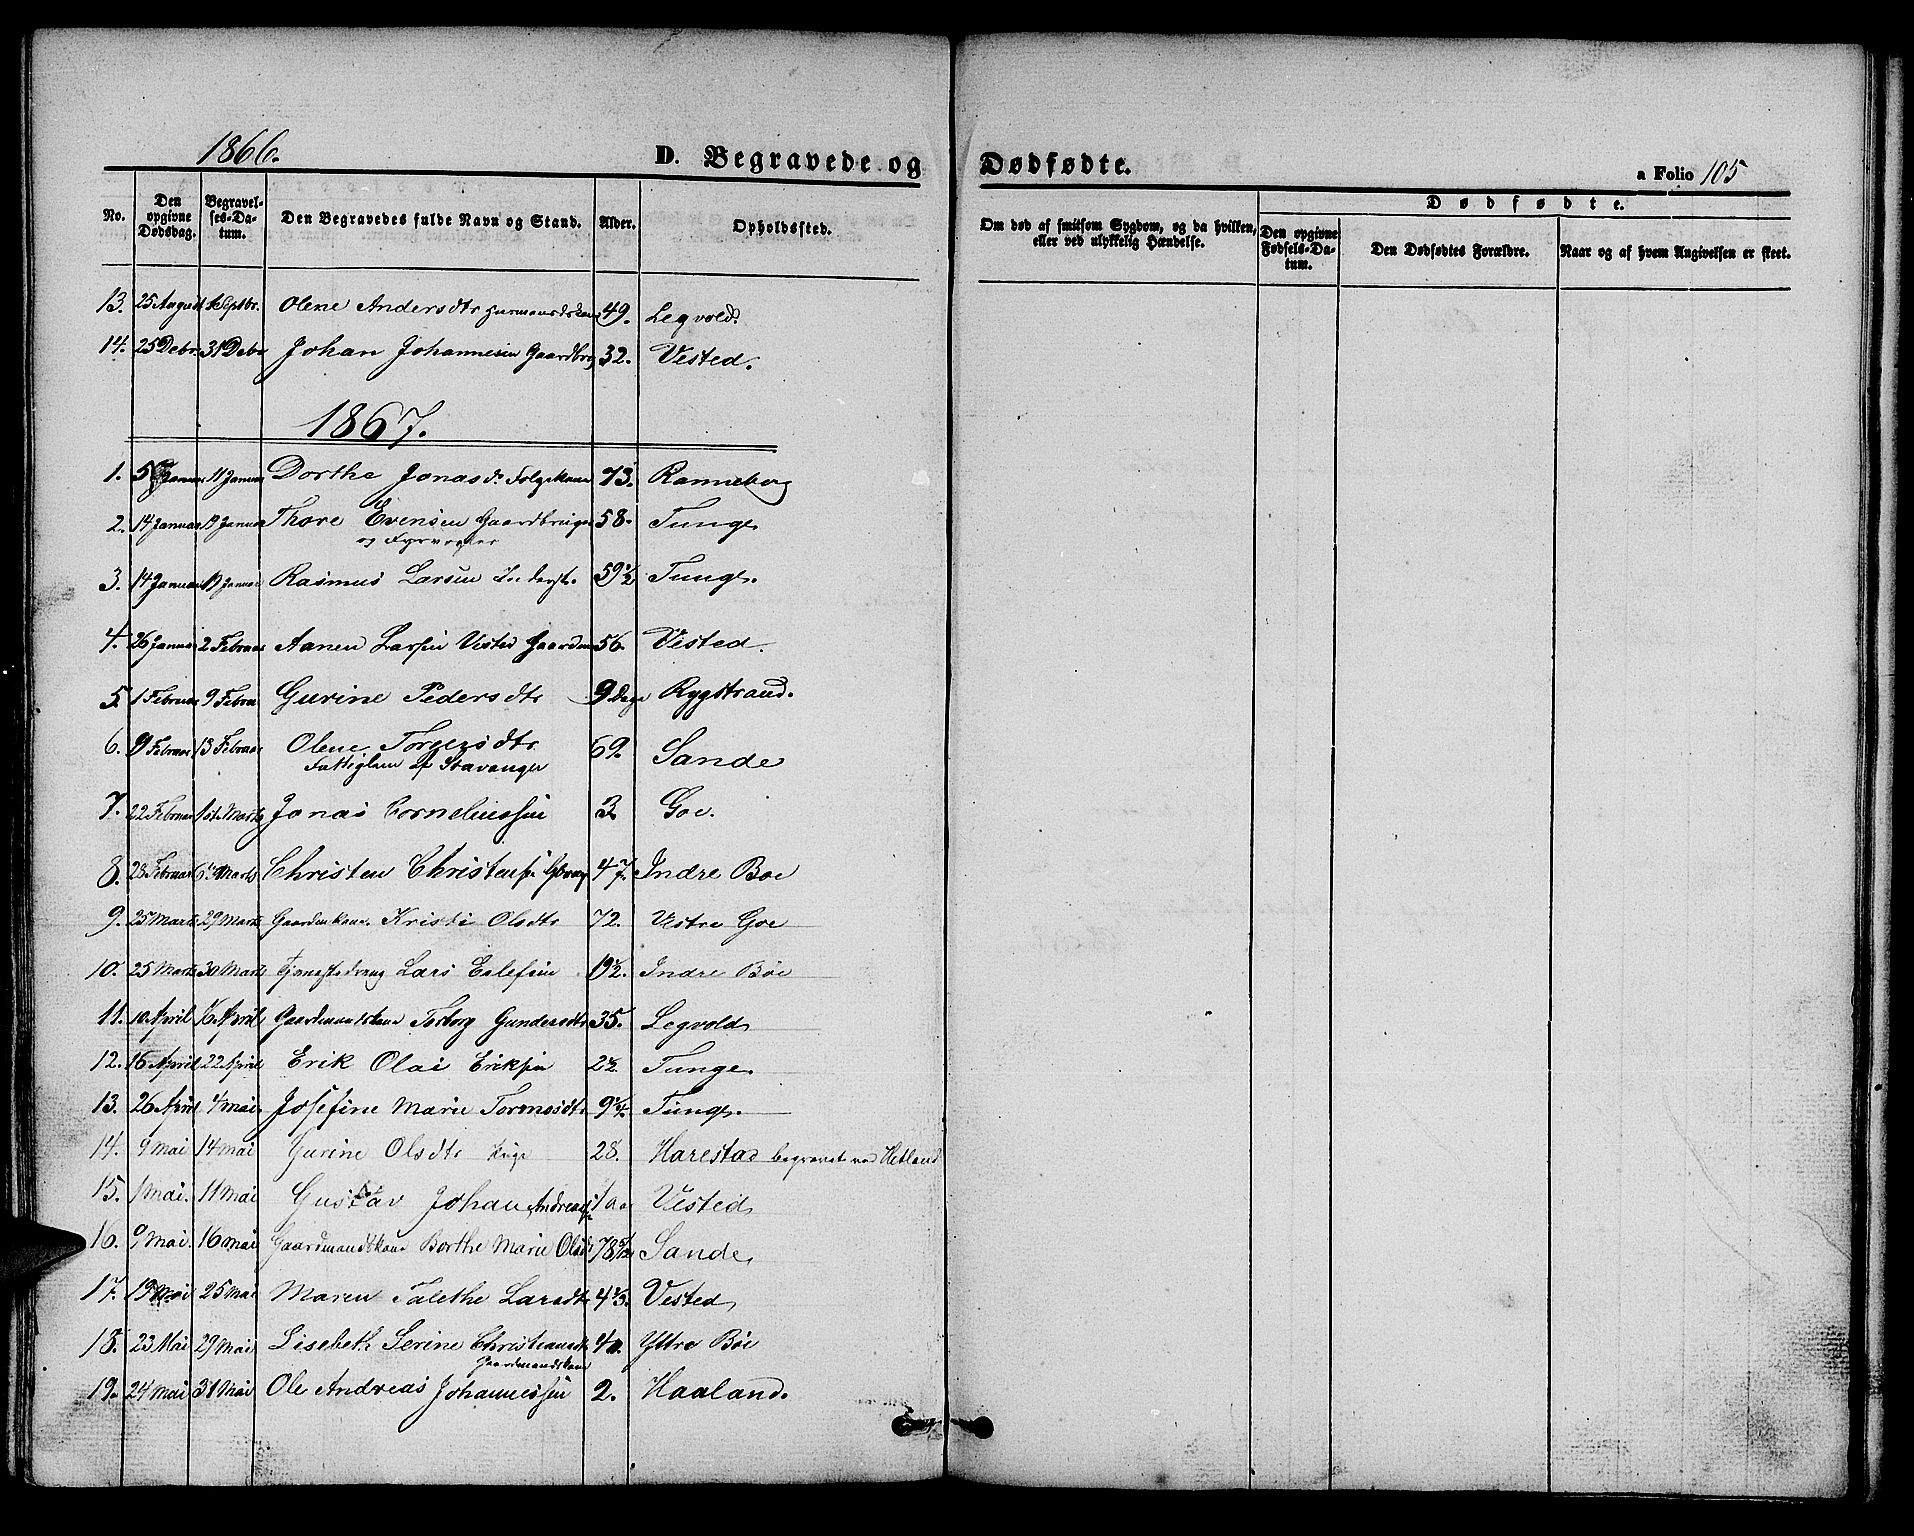 1866.
D. Begravede og Dødfødte.
a Folio 105
No. Den opgivne Dødsdag. Begravelses-Datum. Den Begravedes fulde Navn og Stand. Alder. Opholdssted. Om død af smitsom Sygdom, og da hvilken, eller ved ulykkelig Hændelse. Dødfødte. Den opgivne Fødsels-Datum. Den Dødfødtes Forældre. Naar og af hvem Angivelsen er skeet.
13. 25 August 1 Septbr. Olene Andersdtr 49. Legvold.
14. 25 Debr. 31 Debr Johan Johannesen Gaardbrg 32. Vested.
1867.
1. 5 Januar 11 Januar Dorthe Jonasdr Folgekone 73. Ranneberg
2. 14 Januar 19 Januar Thore Evensen Gaardbruger 58. Tunge
og Fyrvogter
3. 14 Januar 19 Januar Rasmus Larsen Inderst. 59½ Tunge.
4. 26 Januar 2 Februar Aanen Larsen Vested Gaardm 56. Vested.
5. 1 Februar 9 Februar Gurine Pedersdtr 9 Dage Rygstrand.
6. 9 Februar 13 Februar Olene Torgersdtr 69. Sande
Fattiglem af Stavanger
7. 22 Februar 1st Marts Jonas Corneliussen 3 Goe.
8. 28 Februar 6te Marts Christen Christens. 47. Indre Boe
9. 25 Marts 29 Marts Gaardmkone Kristi Olsdtr 72. Vestre Goe
10. 25 Marts 30 Marts Tjenestedreng Lars Eelefsen 19½. Indre Bøe
11. 10 April 16 April Gaardmandskone Torborg Gundersdtr 35. Legvold
12. 16 April 22 April Erik Olai Eriksen 2½. Tunge.
13. 26 April 4 Mai. Josefine Marie Tormosdtr 9¼. Tunge.
14. 9 Mai 14 Mai Gurine Olsdtr Pige 28. Harestad begravet ved Hetland
15. 1 Mai. 11 Mai Gustav Johan Andreas 1 aar Vested
16. 9 Mai. 16 Mai Gaardmandskone Borthe Marie Olsdr 78 5/12 Sande
17. 19 Mai 25 Mai Maren Talethe Larsdtr 4⅔. Vested
18. 23 Mai 29 Mai Lisebeth Serine Christiansdtr 40. Yttre Bøe
Gaardmandskone
19. 24 Mai 31 Mai Ole Andreas Johannessen 2. Haaland.